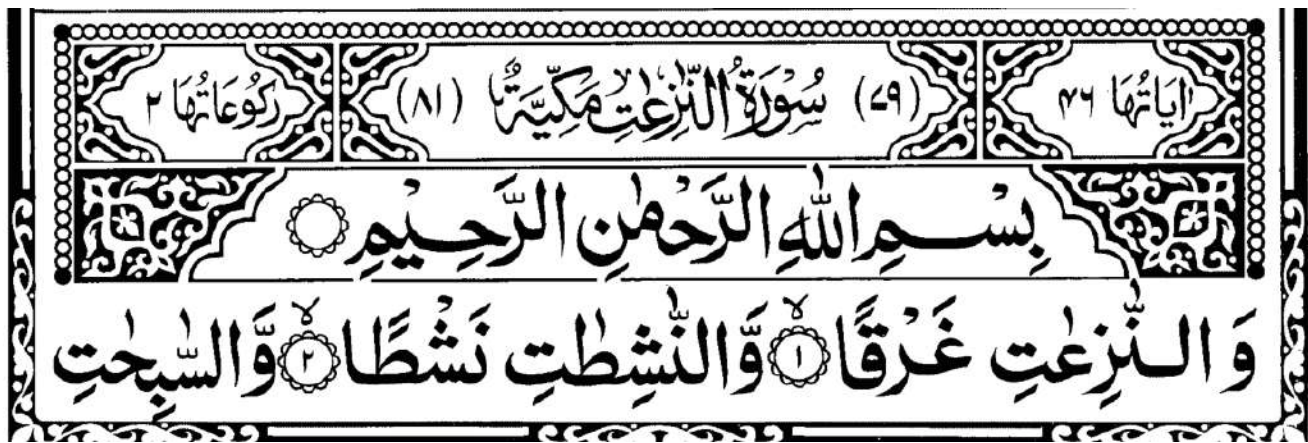 اٰيَاتُهَا ۴۶ (۷۹) سُوْرَةُ النّٰزِعٰتِ مَكِّيَّةٌ (۸۱) رُكُوْعَاتُهَا ۲
بِسْمِ اللّٰهِ الرَّحْمٰنِ الرَّحِيْمِ
وَالنّٰزِعٰتِ غَرْقًا ۙ۝۱ وَّالنّٰشِطٰتِ نَشْطًا ۙ۝۲ وَّالسّٰبِحٰتِ